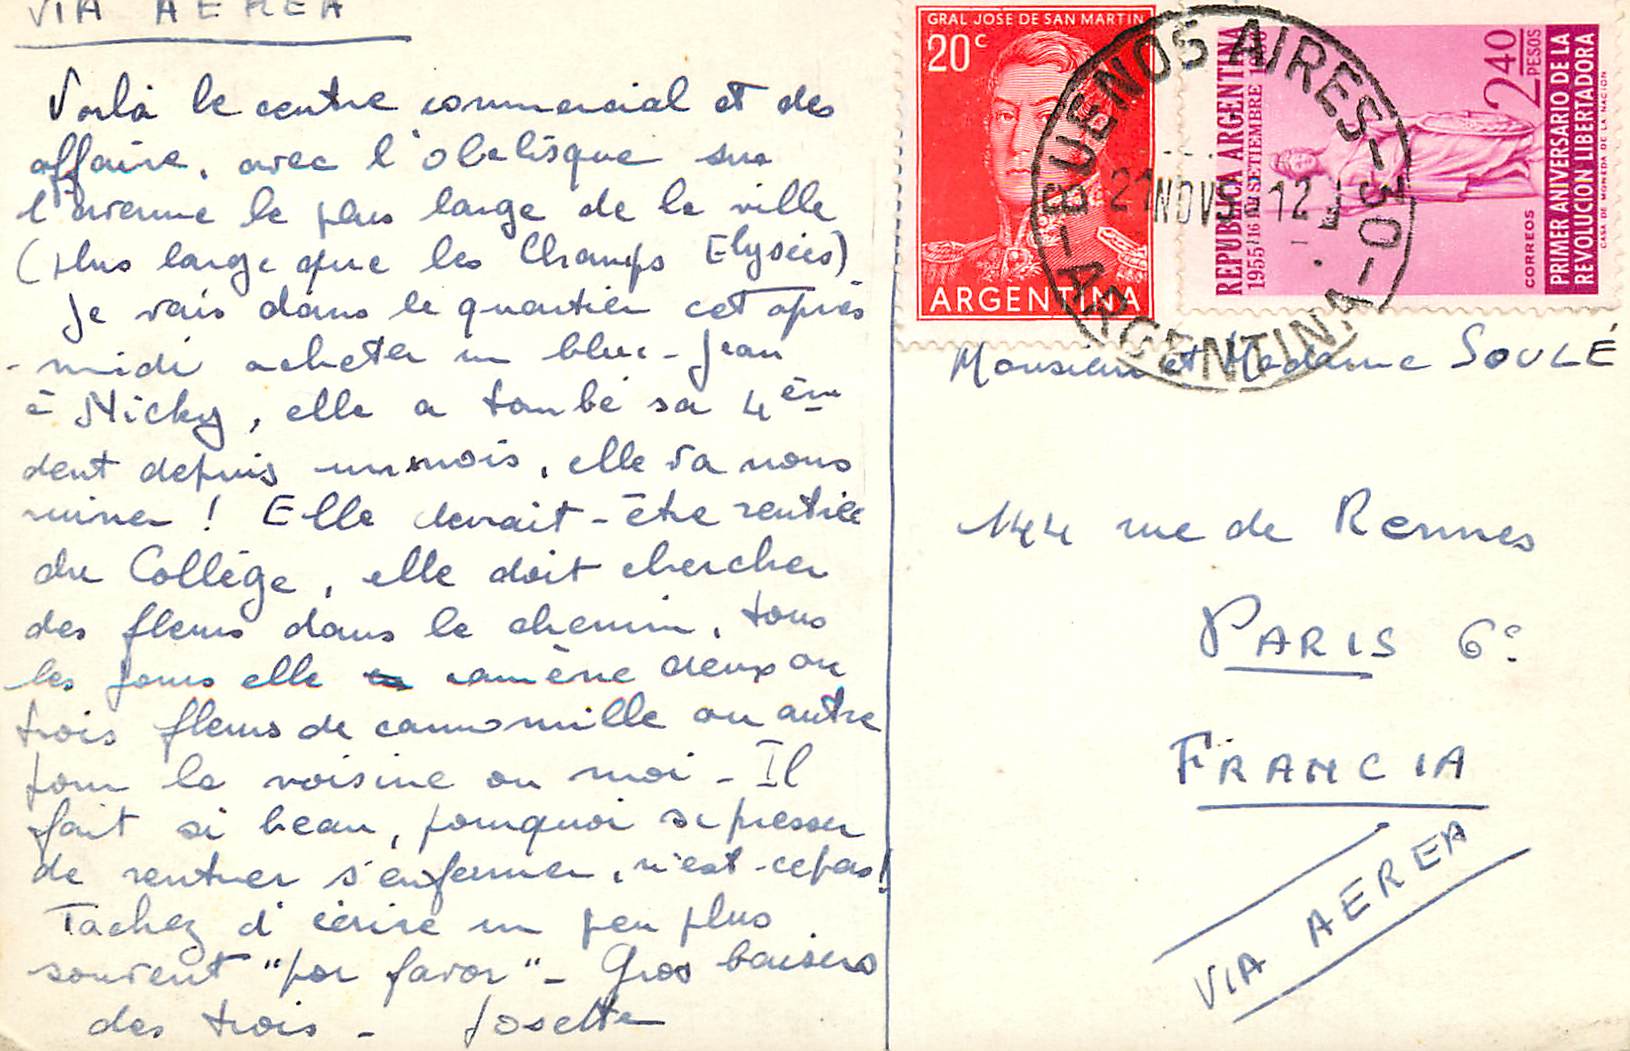 VIA AEREA
Voilà le centre commercial et des
affaire, avec l'obelisque sur
l'avenue le plus large de la ville
(plus large que les Champs Elysées)
Je vais dans le quartier cet après
-midi acheter un blue-jean
à Nicky, elle a tombé sa 4ème
dent depuis un mois, elle va nous
ruiner ! Elle devrait-être rentrée
du Collège, elle doit chercher
des fleurs dans le chemin, tous
les jours elle ramène deux ou
trois fleurs de cammomille ou autre
pour la voisine ou moi - Il
fait si beau, pourquoi se presser
de rentrer s'enfermer, n'est-cepas!
Tachez d'écrire un peu plus
souvent "por favor" - Gros baisers
des trois - Josette
GRAL JOSE DE SAN MARTIN
20c
ARGENTINA
REPUBLICA ARGENTINA
1955 16 DE SETIEMBRE 1956
2 40
PESOS
CORREOS
PRIMER ANIVERSARIO DE LA
REVOLUCION LIBERTADORA
CASA DE MONEDA DE LA NACION
BUENOS AIRES-30-
-ARGENTINA-
21 NOV 12
Monsieur et Madame SOULÉ
144 rue de Rennes
PARIS 6e
FRANCIA
VIA AEREA